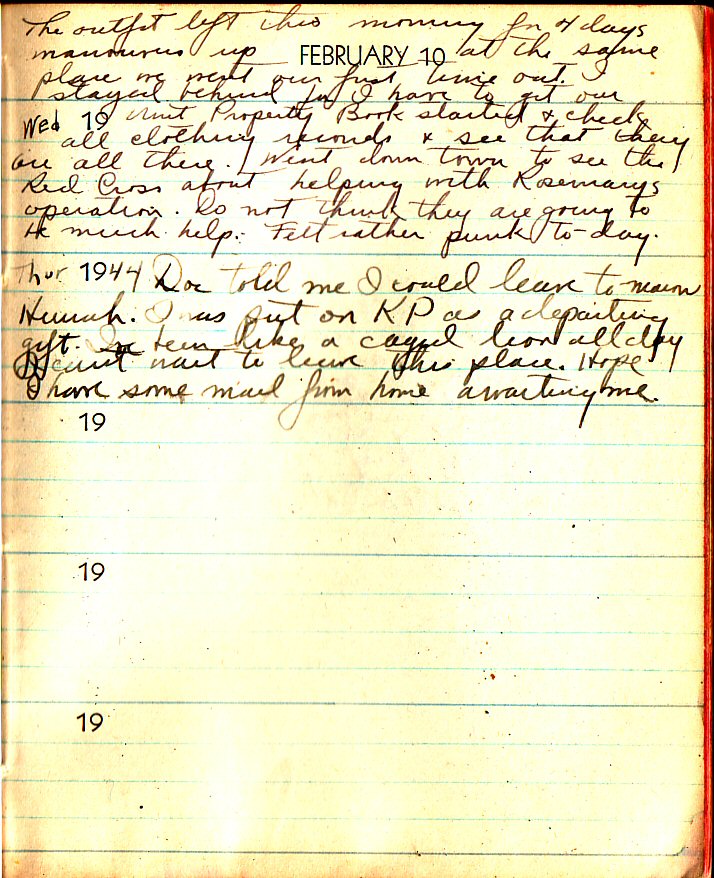 The outfit left this morning for 4 days
manouvers up FEBRUARY 10 at the same
place we went our first time out. I
stayed behind for I have to get our
Wed 19 Unit Property Book started & check
all clothing records & see that they
are all there. Went down town to see the
Red Cross about helping with Rosemarys
operation. Do not think they are going to
be much help. Felt rather punk to-day.
Thur 1944 Doc told me I could leave to-morrow
Hurrah. I was put on KP as a departing
gift. I've been like a caged lion all day
I can't wait to leave this place. Hope
I have some mail from home awaiting me.
19
19
19